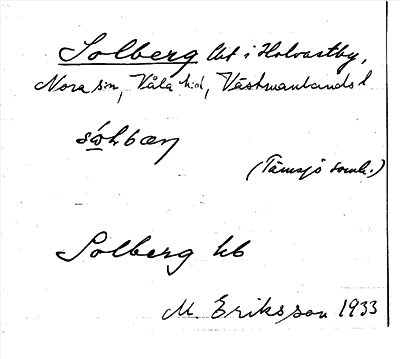 Solberg lht i Holvastby,
Nora sn, Våla hd, Västmanlands l
(Tärnsjö komb.)
Solberg hb
M Eriksson 1933